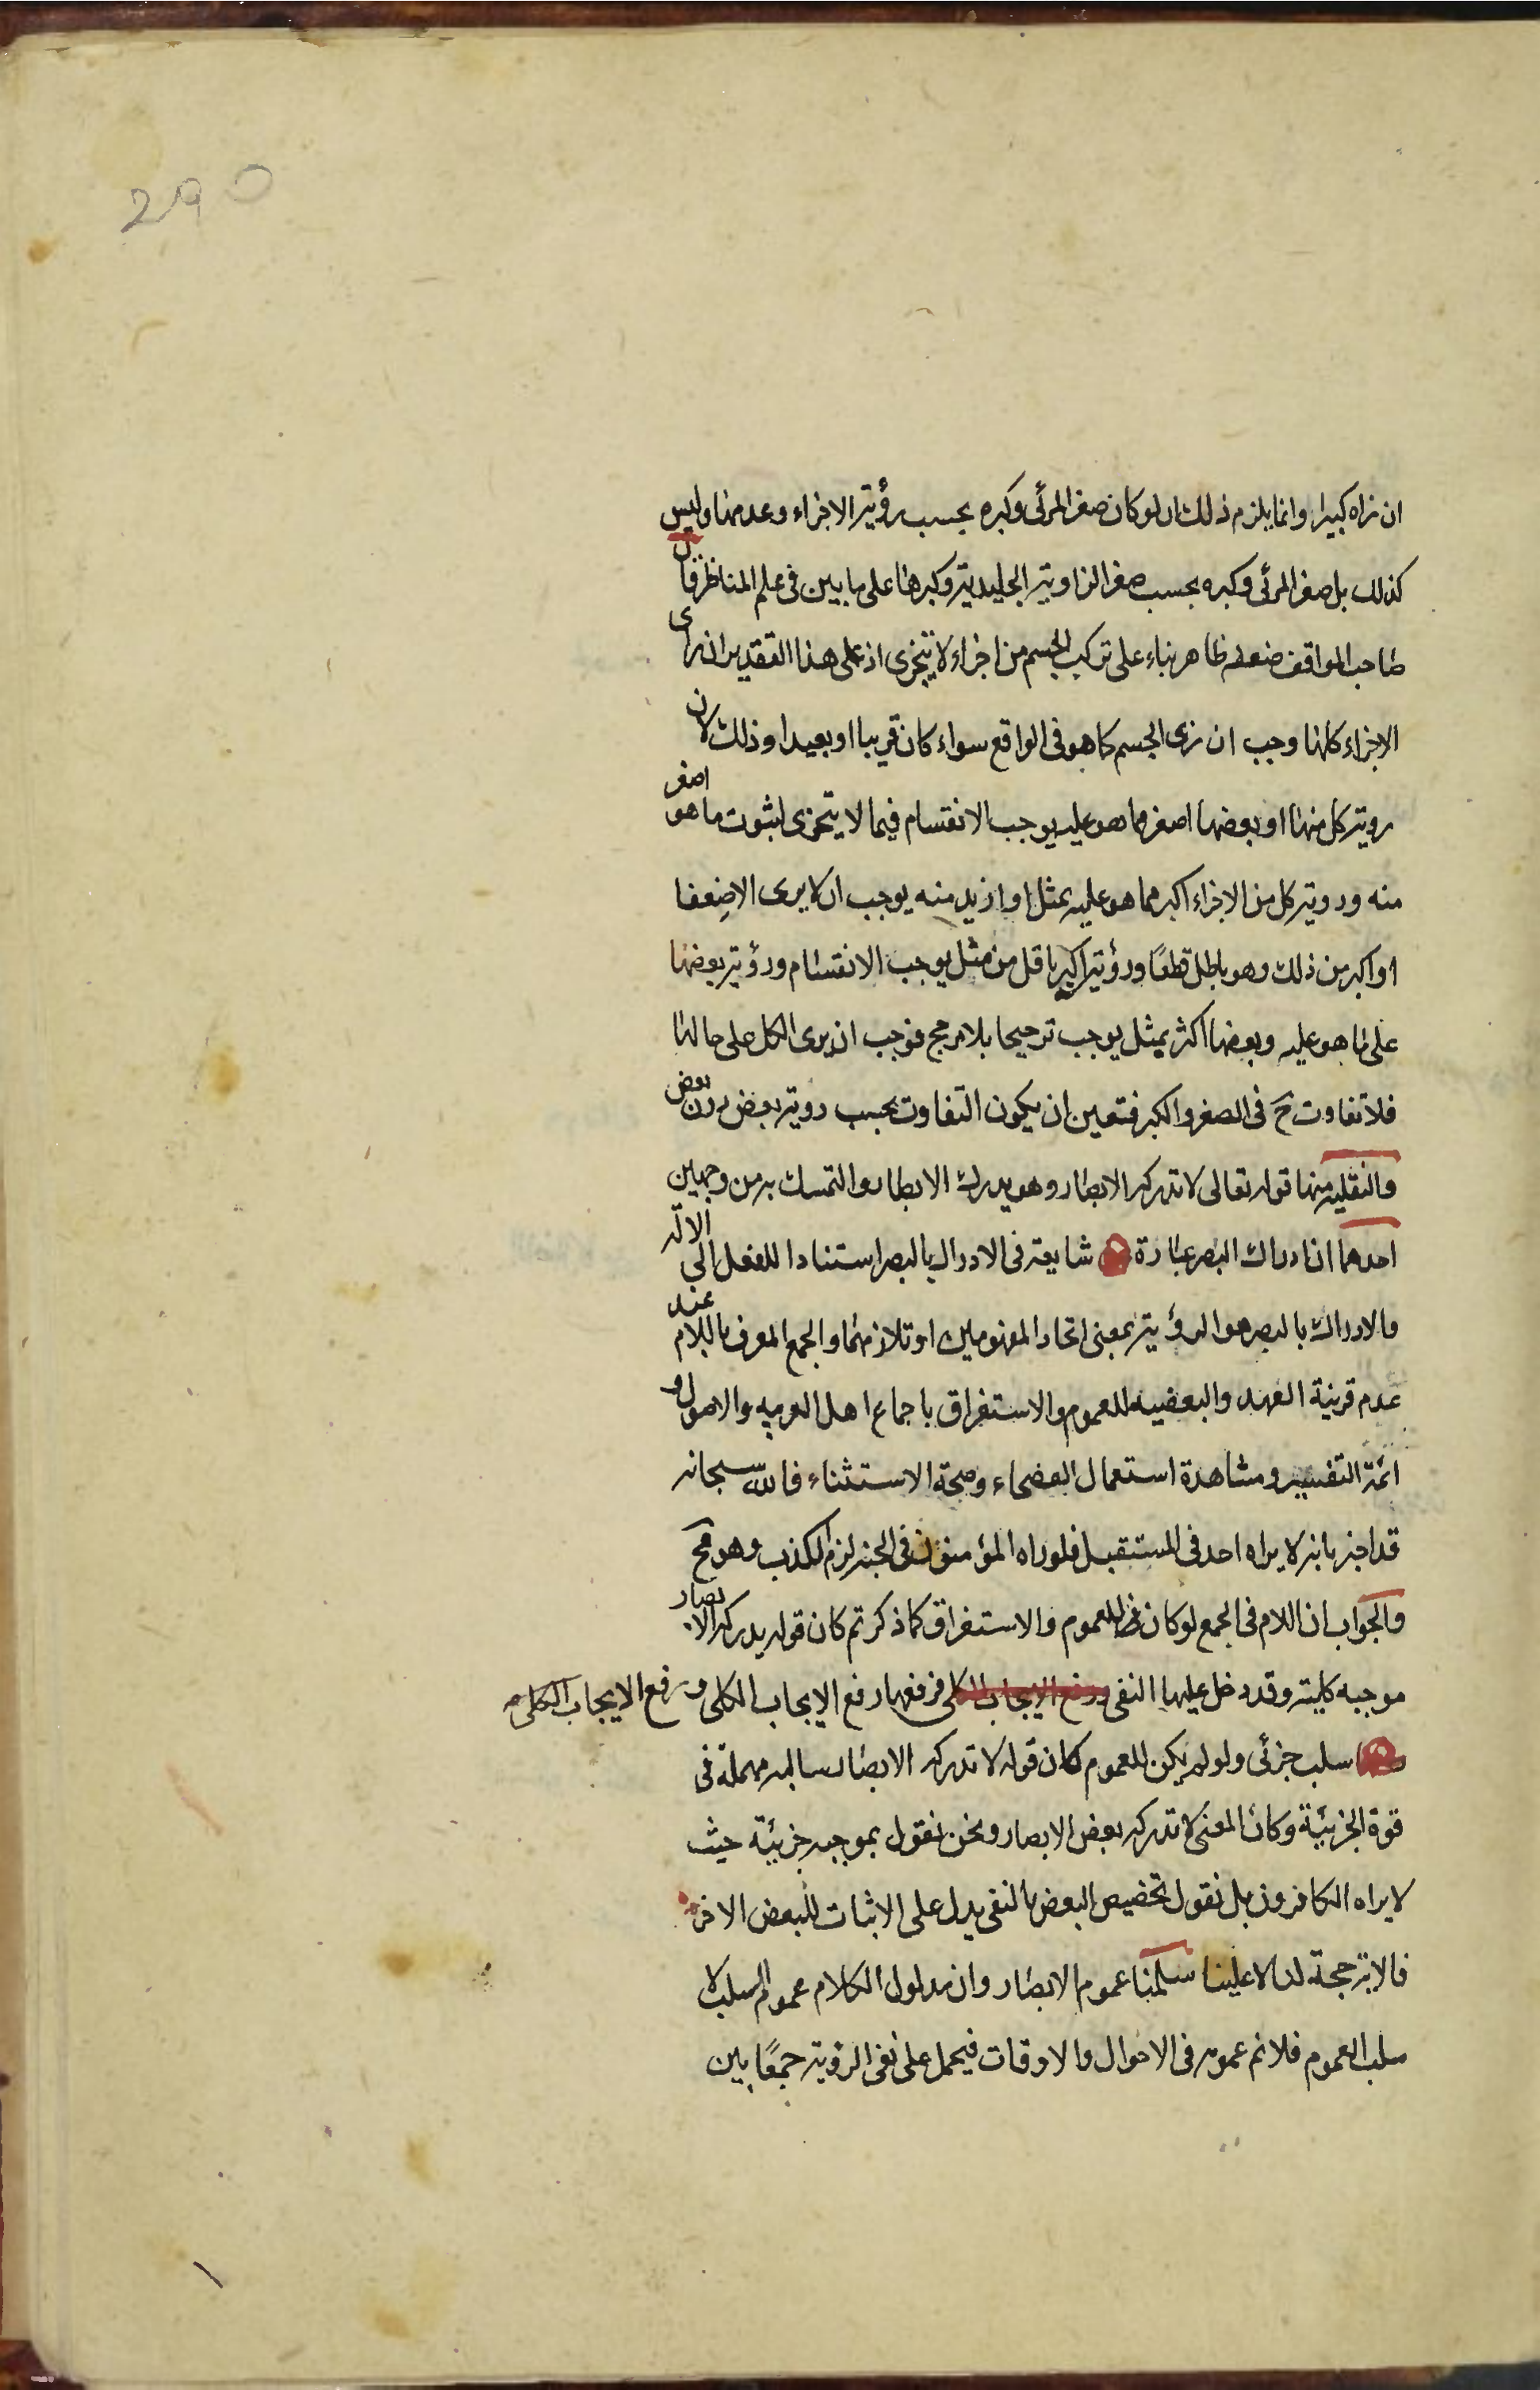 290
ان نراه كبيرا وانما يلزم ذلك ان لو كان صغر المرئى وكبره بحسب رؤية الاجزاء وعدمها وليس
كذلك بل صغر المرئى وكبره بحسب صغر الزاوية الجليدية وكبرها على ما بين فى علم المناظر قال
صاحب المواقف ضعفه ظاهر بناء على تركب الجسم من اجزاء لا يتجزى اذ على هذا التقدير ان نرى
الاجزاء كلها وجب ان نرى الجسم كما هو فى الواقع سواء كان قريبا او بعيدا وذلك لان
روية كل منها او بعضها اصغر مما هو عليه يوجب الانقسام فيما لا يتجزى لثبوت ما هو اصغر
منه وروية كل من الاجزاء اكبر مما هو عليه بمثل او ازيد منه يوجب ان لا يرى الا ضعفا
او اكبر من ذلك وهو باطل قطعًا ورؤية اكبر باقل من مثل يوجب الانقسام ورؤية بعضها
على ما هو عليه وبعضها اكثر بمثل يوجب ترجيحا بلا مرجح فوجب ان يرى الكل على حالها
فلا تفاوت ح فى الصغر والكبر فتعين ان يكون التفاوت بحسب روية بعض دون بعض
والنقليه منها قوله تعالى لا تدركه الابصار وهو يدرك الابصار والتمسك به من وجهين
احدهما ان ادراك البصر عبارة شايعة فى الادراك بالبصر استنادا للفعل الى الاله
والادراك بالبصر هو الرؤية بمعنى اتحاد المفهومين او تلازمهما والجمع المعرف باللام عند
عدم قرينة العهد والبعضيه للعموم والاستغراق باجماع اهل العربيه والاصول و
ائمة التفسير ومشاهدة استعمال الفصحاء وصحة الاستثناء فالله سبحانه
قد اخبر بانه لا يراه احد فى المستقبل فلو راه المؤمنون فى الجنه لزم الكذب وهو مح
والجواب ان اللام فى الجمع لو كان للعموم والاستغراق كما ذكرتم كان قوله يدركه الابصار
موجبه كلية وقد دخل عليها النفى فرفعها رفع الايجاب الكلى ورفع الايجاب الكلى
سلب جزئى ولو لم يكن للعموم كان قوله لا تدركه الابصار سالبه مهملة فى
قوة الجزئية وكان المعنى لا تدركه بعض الابصار ونحن نقول بموجبه جزئية حيث
لا يراه الكافرون بل نقول تخصيص البعض بالنفى يدل على الاثبات للبعض الاخر
فالاية حجة لنا لا علينا سلمنا عموم الابصار وان مدلول الكلام عموم السلب لا
سلب العموم فلا نم عمومه فى الاحوال والاوقات فيحمل على نفى الرؤية جمعًا بين